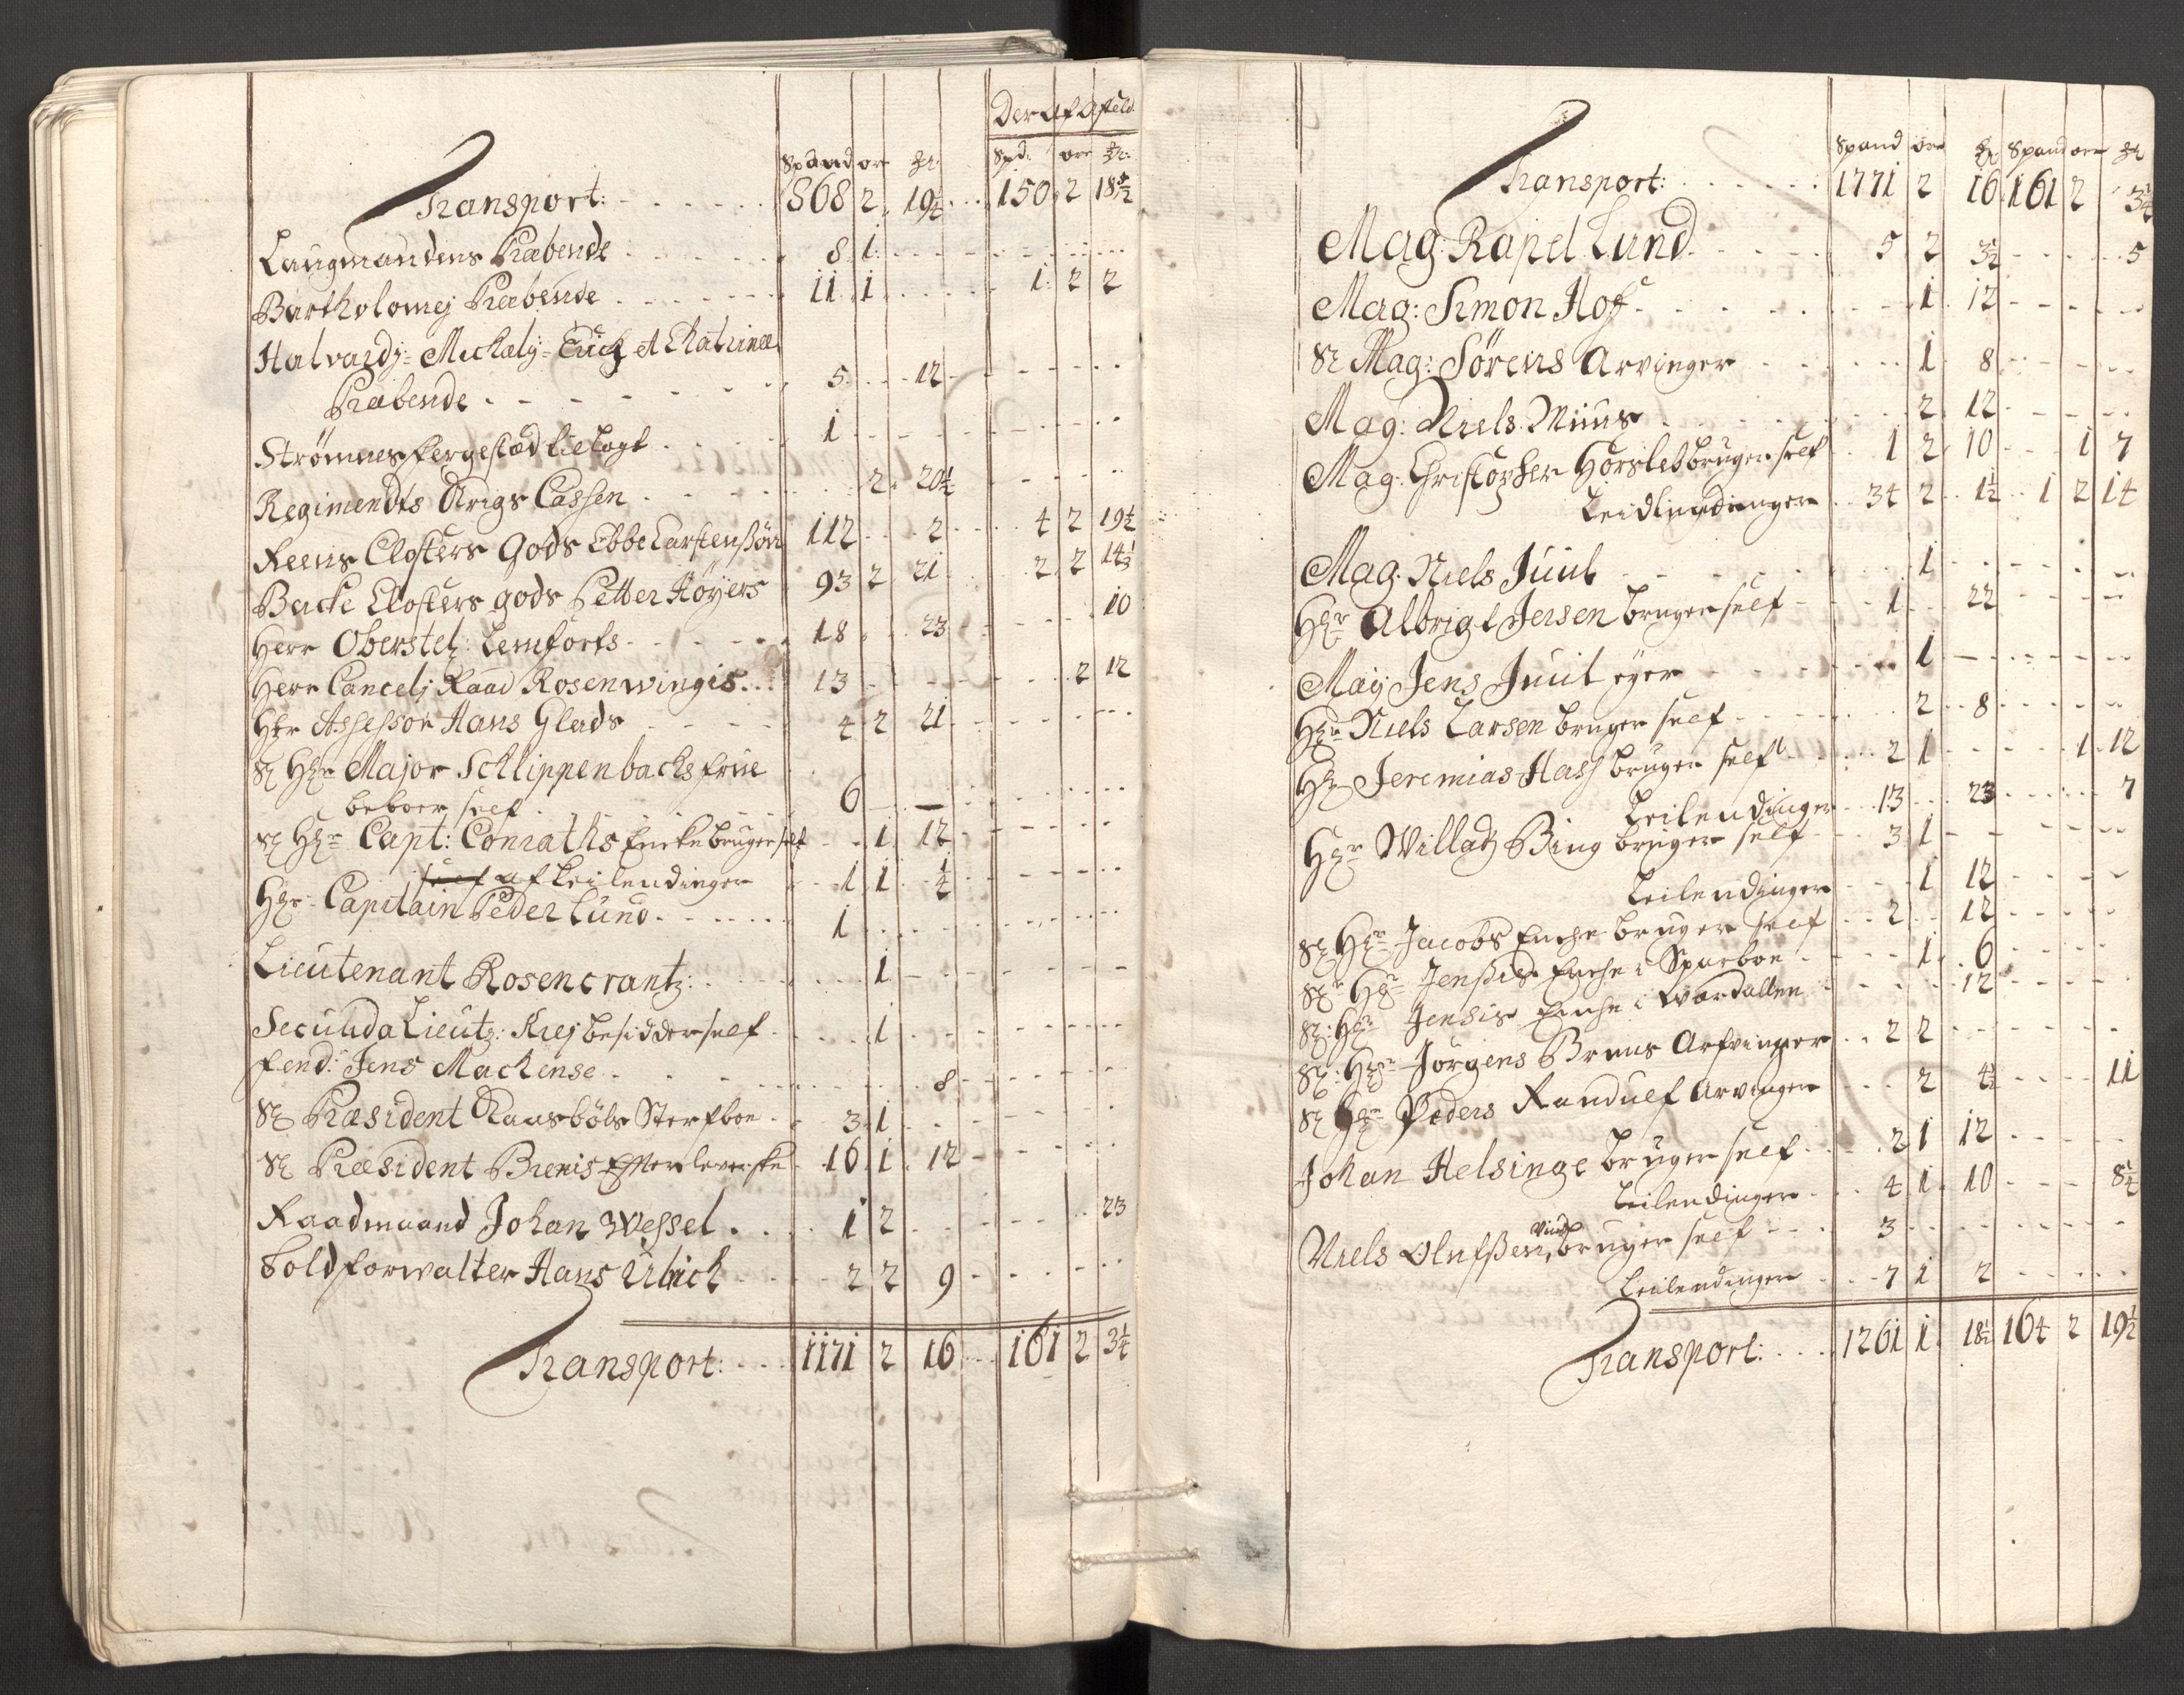 Der af øfreld
Spand ore Ml: Spd: ore Ml:
Transport: 868 2 19 1/4 150 2 18 1/2
Laugmandens Præbende 8 1
Bartholomej Præbende 11 1 1 2 2
Halvardj= Michælij= Erich et Chatrinæ
Præbende 5 12
Strømmes fergestæd tillagt 1
Regimendts Krigs Cassen 2 20 1/2
Reens Closters Gods Ebbe Carstensøn 112 2 4 2 19 1/4
Backe Closters gods Petter Höyers 93 2 21 2 2 14 1/3
Herr Oberstel: Lemforts 18 23 10
Herr Cancelj Raad Rosenwingis 13 2 12
Hr Assessor Hans Glads 4 2 21
Sl Hr Major Schlippenbachs frue
beboer self 6
Sl Hr Capt: Conraths Encke bruger self 1 12
af Leilendinger 1 1 1/4
Hr Capitain Peder Lund 1
Lieutenant Rosencrantz: 1
Secunda Lieutz: Krej besidder self 1
fend: Jens Mackense 8
Sl Præsident Kaasbøls Sterfboe 3 1
Sl Præsident Brenis Efterleverske 16 1 12
Raadmand Johan Wessel 1 2 23
Toldforwalter Hans Ulrich 2 2 9
Transport: 1171 2 16 161 2 3 1/4
Spand ore Ml Spand ore Ml
Transport: 1771 2 16 161 2 3 1/4
Mag: Rapel Lund 5 2 3 1/2 5
Mag: Simon Hof 1 12
Sl Mag: Sörens Arvinger 1 8
Mag: Niels Muus 2 12
Mag: Christopher Hörsleb bruger self 1 2 10 1 7
Leidlindinger 34 2 1 1/2 1 2 14
Mag. Niels Juul 1
Hr Albrigt Jersen bruger self 1 22
Mag Jens Juul eyer 1
Hr Niels Larsen bruger self 2 8
Hr Jeremias Hass bruger self 2 1 1 12
Leilendinger 13 23 7
Hr Willadz Bing bruger self 3 1
Leilendinger 1 12
Sl Hr Jacobs Encke bruger self 2 12
Sl Hr Jensis Encke i Sparboe 1 6
Sl: Hr Jensis Encke i Wærdallen 12
Sl: Hr Jörgens Bruns Arfvinger 2 2
Sl Hr Peders Randulf Arvinger 2 4 1/2 11
Johan Helsinge bruger self 2 1 12
Leilendinger 4 1 10 8 1/4
Niels Olufssen, bruger self 3
Leilendinger 7 1 2
Transport: 1261 1 18 1/2 164 2 19 1/2